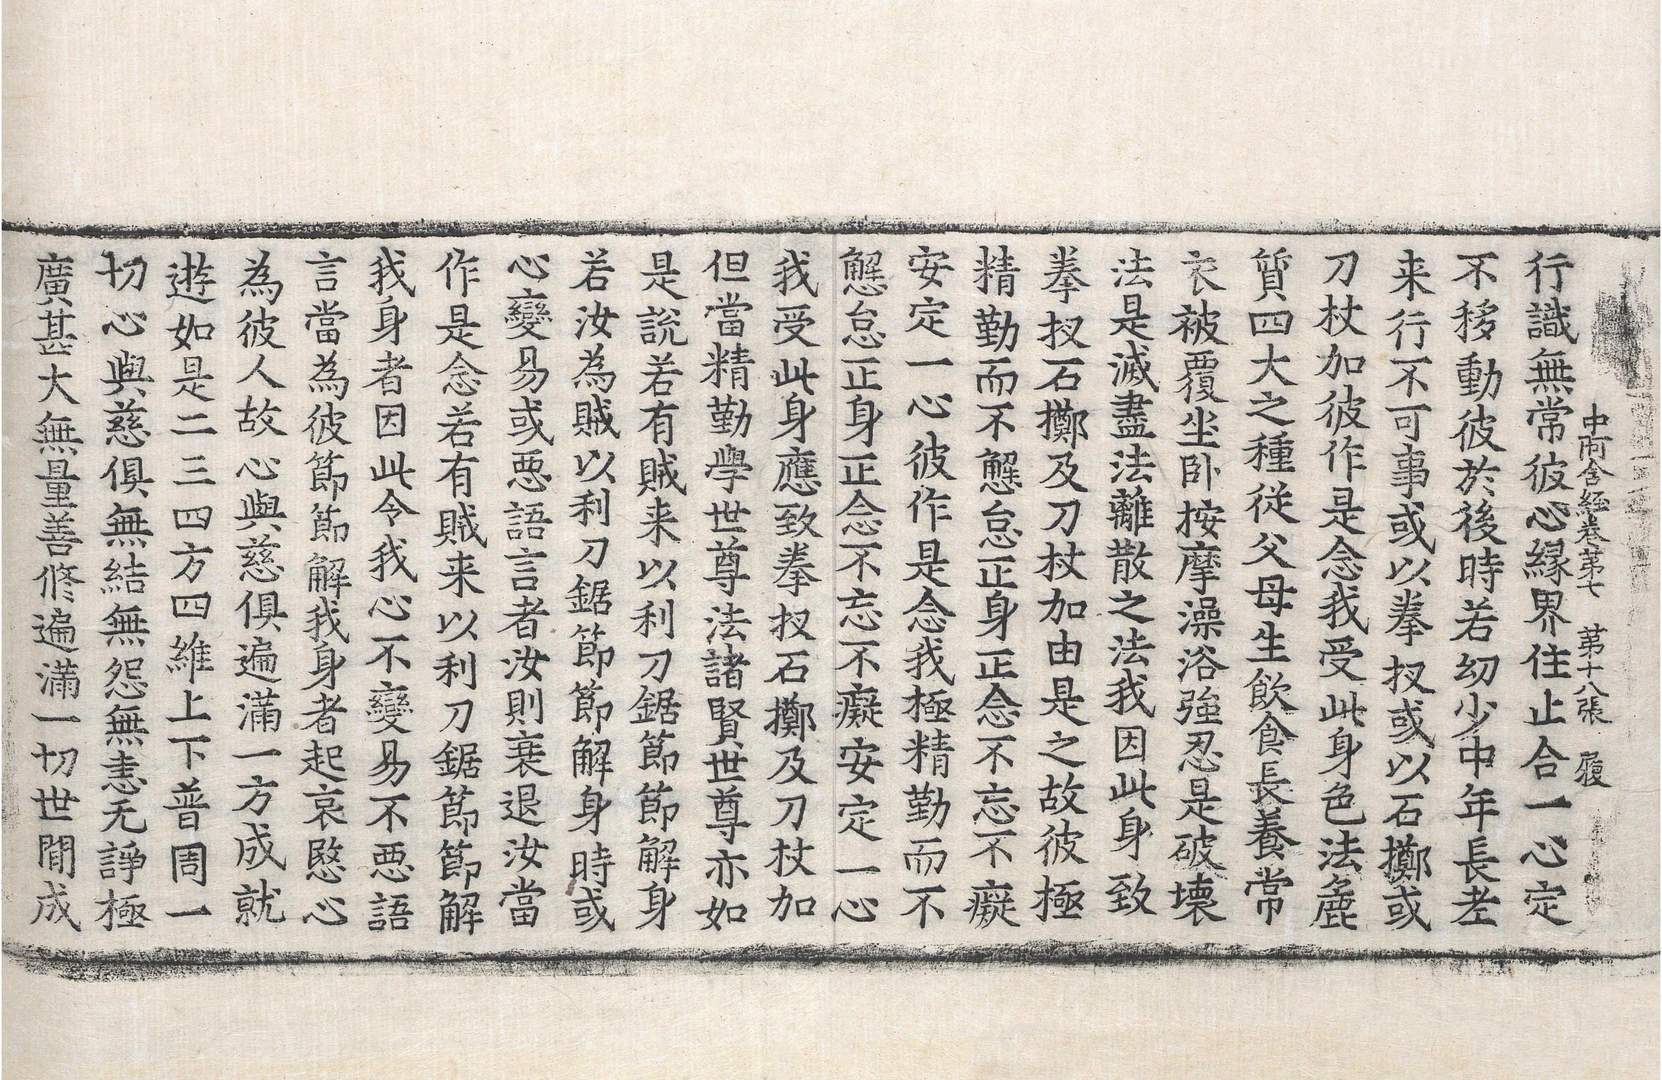 中阿含經卷第七　第十八張　履
行識無常彼心緣界住止合一心定
不移動彼於後時若幼少中年長老
来行不可事或以拳扠或以石擲或
刀杖加彼作是念我受此身色法麁
質四大之種従父母生飲食長養常
衣被覆坐臥按摩澡浴強忍是破壞
法是滅盡法離散之法我因此身致
拳扠石擲及刀杖加由是之故彼極
精勤而不懈怠正身正念不忘不癡
安定一心彼作是念我極精勤而不
懈怠正身正念不忘不癡安定一心
我受此身應致拳扠石擲及刀杖加
但當精勤學世尊法諸賢世尊亦如
是說若有賊来以利刀鋸節節解身
若汝為賊以利刀鋸節節解身時或
心變易或惡語言者汝則衰退汝當
作是念若有賊来以利刀鋸節節解
我身者因此令我心不變易不惡語
言當為彼節節解我身者起哀愍心
為彼人故心與慈俱遍滿一方成就
遊如是二三四方四維上下普周一
切心與慈俱無結無怨無恚无諍極
廣甚大無量善修遍滿一切世間成